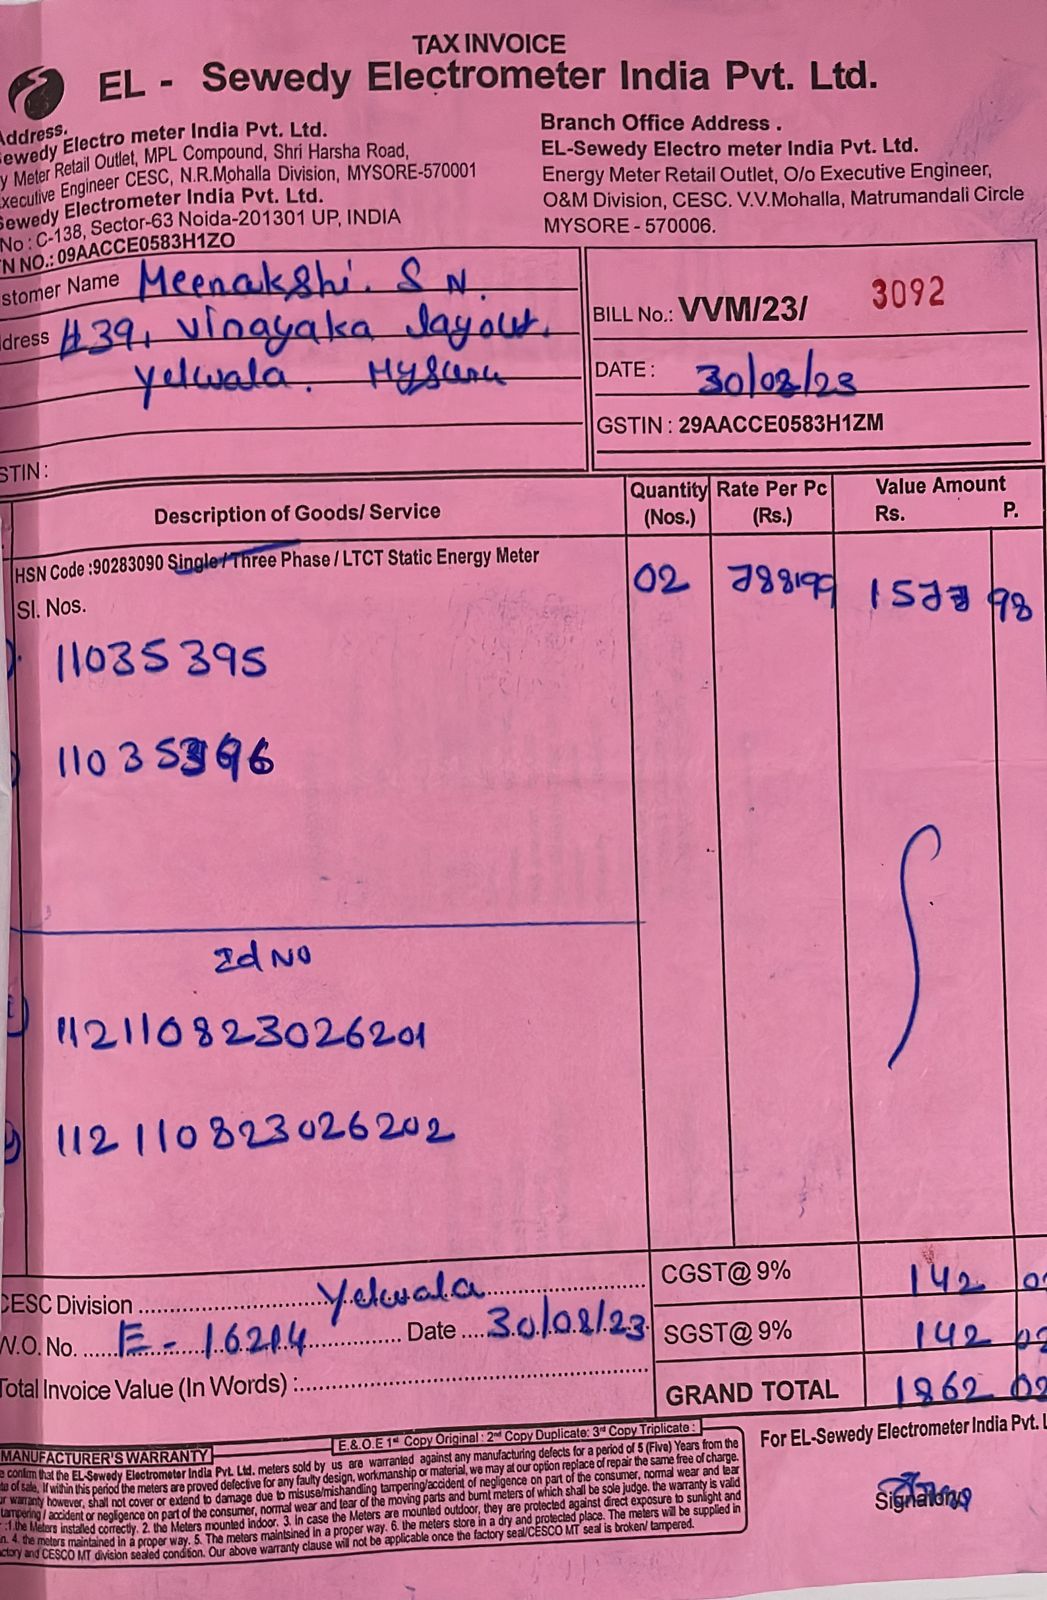 TAX INVOICE
EL - Sewedy Electrometer India Pvt. Ltd.
Address.
Sewedy Electro meter India Pvt. Ltd.
y Meter Retail Outlet, MPL Compound, Shri Harsha Road,
xecutive Engineer CESC, N.R.Mohalla Division, MYSORE-570001
Sewedy Electrometer India Pvt. Ltd.
No : C-138, Sector-63 Noida-201301 UP, INDIA
N NO.: 09AACCE0583H1ZO
Branch Office Address .
EL-Sewedy Electro meter India Pvt. Ltd.
Energy Meter Retail Outlet, O/o Executive Engineer,
O&M Division, CESC. V.V.Mohalla, Matrumandali Circle
MYSORE - 570006.
stomer Name Meenakshi. S N.
dress #39, Vinayaka layout.
Yelwala. Mysuru
STIN :
BILL No.: VVM/23/ 3092
DATE : 30/08/23
GSTIN : 29AACCE0583H1ZM
Description of Goods/ Service Quantity (Nos.) Rate Per Pc (Rs.) Value Amount Rs. P.
HSN Code :90283090 Single / Three Phase / LTCT Static Energy Meter 02 788.99 1577 98
Sl. Nos.
11035395
11035396
Id NO
112110823026201
112110823026202
CGST@ 9% 142 02
SGST@ 9% 142 02
GRAND TOTAL 1862 02
CESC Division Yelwala
W.O. No. E - 16214 Date 30/08/23
Total Invoice Value (In Words) :
E.& O.E 1st Copy Original : 2nd Copy Duplicate: 3rd Copy Triplicate :
MANUFACTURER'S WARRANTY
e confirm that the EL-Sewedy Electrometer India Pvt. Ltd. meters sold by us are warranted against any manufacturing defects for a period of 5 (Five) Years from the
te of sale, If within this period the meters are proved defective for any faulty design, workmanship or material, we may at our option replace of repair the same free of charge.
ur warranty however, shall not cover or extend to damage due to misuse/mishandling tampering/accident of negligence on part of the consumer, normal wear and tear
tampering / accident or negligence on part of the consumer, normal wear and tear of the moving parts and burnt meters of which shall be sole judge. the warranty is valid
: 1.the Meters installed correctly. 2. the Meters mounted indoor. 3. In case the Meters are mounted outdoor, they are protected against direct exposure to sunlight and
n. 4. the meters maintained in a proper way. 5. The meters maintsined in a proper way. 6. the meters store in a dry and protected place. The meters will be supplied in
ctory and CESCO MT division sealed condition. Our above warranty clause will not be applicable once the factory seal/CESCO MT seal is broken/ tampered.
For EL-Sewedy Electrometer India Pvt. L